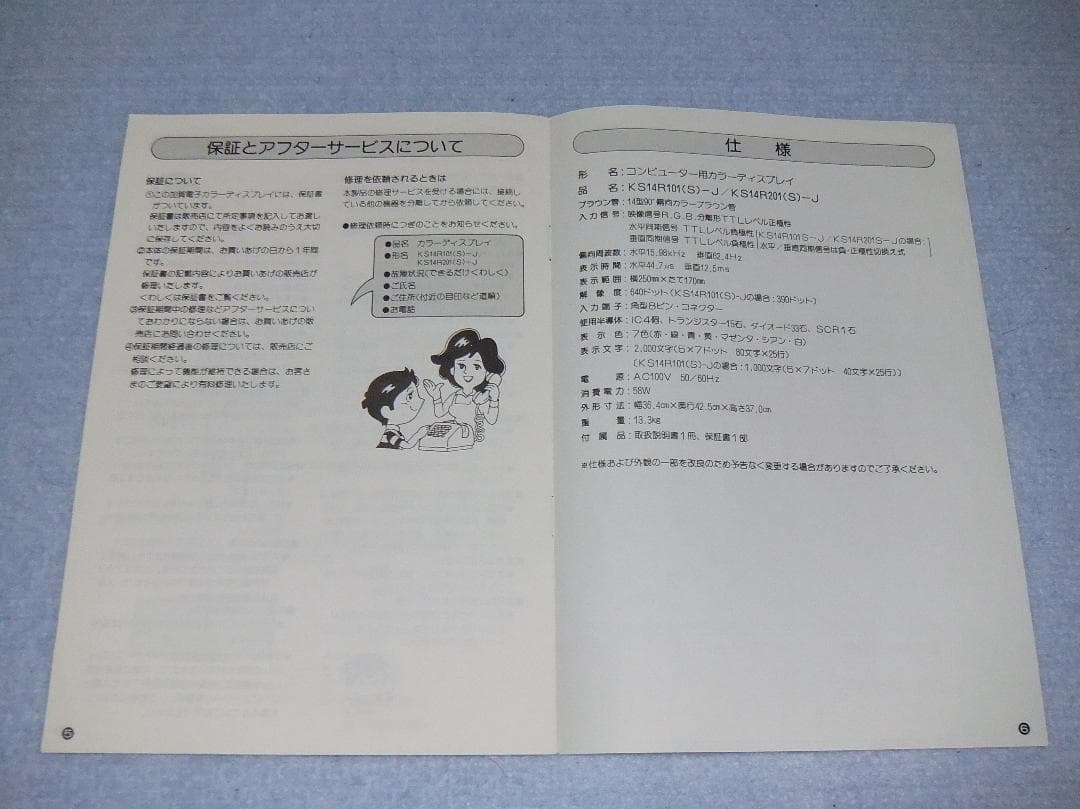 保証とアフターサービスについて
保証について
①この加賀電子カラーディスプレイには、保証書
がついています。
保証書は販売店にて所定事項を記入してお渡し
いたしますので、内容をよくお読みのうえ大切
に保存してください。
②本体の保証期間は、お買いあげの日から1年間
です。
保証書の記載内容によりお買いあげの販売店が
修理いたします。
くわしくは保証書をご覧ください。
③保証期間中の修理などアフターサービスについ
ておわかりにならない場合は、お買いあげの販
売店にお問い合わせください。
④保証期間経過後の修理については、販売店にご
相談ください。
修理によって機能が維持できる場合は、お客さ
まのご要望により有料修理いたします。
修理を依頼されるときは
本製品の修理サービスを受ける場合には、接続し
ている他の機器を分離してから依頼してください。
●修理依頼時につぎのことをお知らせください。
●品名 カラーディスプレイ
●形名 KS14R101(S)-J
KS14R201(S)-J
●故障状況(できるだけくわしく)
●ご氏名
●ご住所(付近の目印など道順)
●お電話
❺
仕様
形名：コンピューター用カラーディスプレイ
品名：KS14R101(S)-J／KS14R201(S)-J
ブラウン管：14型90°偏向カラーブラウン管
入力信号：映像信号R.G.B.分離形TTLレベル正極性
水平同期信号 TTLレベル負極性[KS14R101S-J／KS14R201S-Jの場合：
垂直同期信号 TTLレベル負極性[水平／垂直同期信号は負・正極性切換え式]
偏向周波数：水平15.98kHz 垂直62.4Hz
表示時間：水平44.7μs 垂直12.5ms
表示範囲：横250mm×たて170mm
解像度：640ドット(KS14R101(S)-Jの場合：390ドット)
入力端子：角型8ピン・コネクター
使用半導体：IC4個、トランジスター15石、ダイオード33石、SCR1石
表示色：7色(赤・緑・青・黄・マゼンタ・シアン・白)
表示文字：2,000文字(5×7ドット 80文字×25行)
(KS14R101(S)-Jの場合：1,000文字(5×7ドット 40文字×25行))
電源：AC100V 50/60Hz
消費電力：58W
外形寸法：幅36.4cm×奥行42.5cm×高さ37.0cm
重量：13.3kg
付属品：取扱説明書1冊、保証書1部
※仕様および外観の一部を改良のため予告なく変更する場合がありますのでご了承ください。
❻